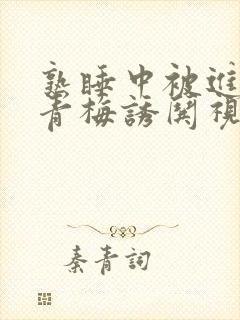 熟睡中被進
青梅誘関視
秦青詞